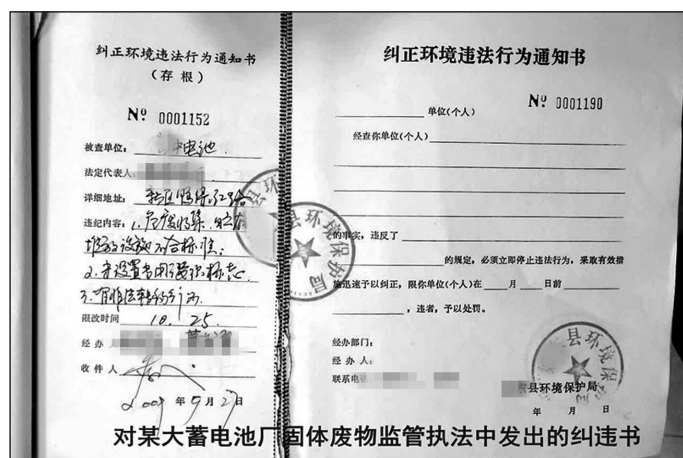 纠正环境违法行为通知书
(存根)
№ 0001152
被查单位: 电池
法定代表人
详细地址:
违纪内容: 1. 危废收集、贮存
堆放设施不合标准;
2. 未设置专用标识标志
3. 有非法转移行为
限改时间 10. 25.
经办人
收件人
2009 年 9 月 27 日
纠正环境违法行为通知书
№ 0001190
单位(个人)
经查你单位(个人)
的事实,违反了
的规定,必须立即停止违法行为,采取有效措
施迅速予以纠正,限你单位(个人)在 月 日前
,违者,予以处罚。
经办部门:
经办人:
联系电话
县环境保护局
年 月 日
县环境保护局
县环境保护局
对某大蓄电池厂固体废物监管执法中发出的纠违书